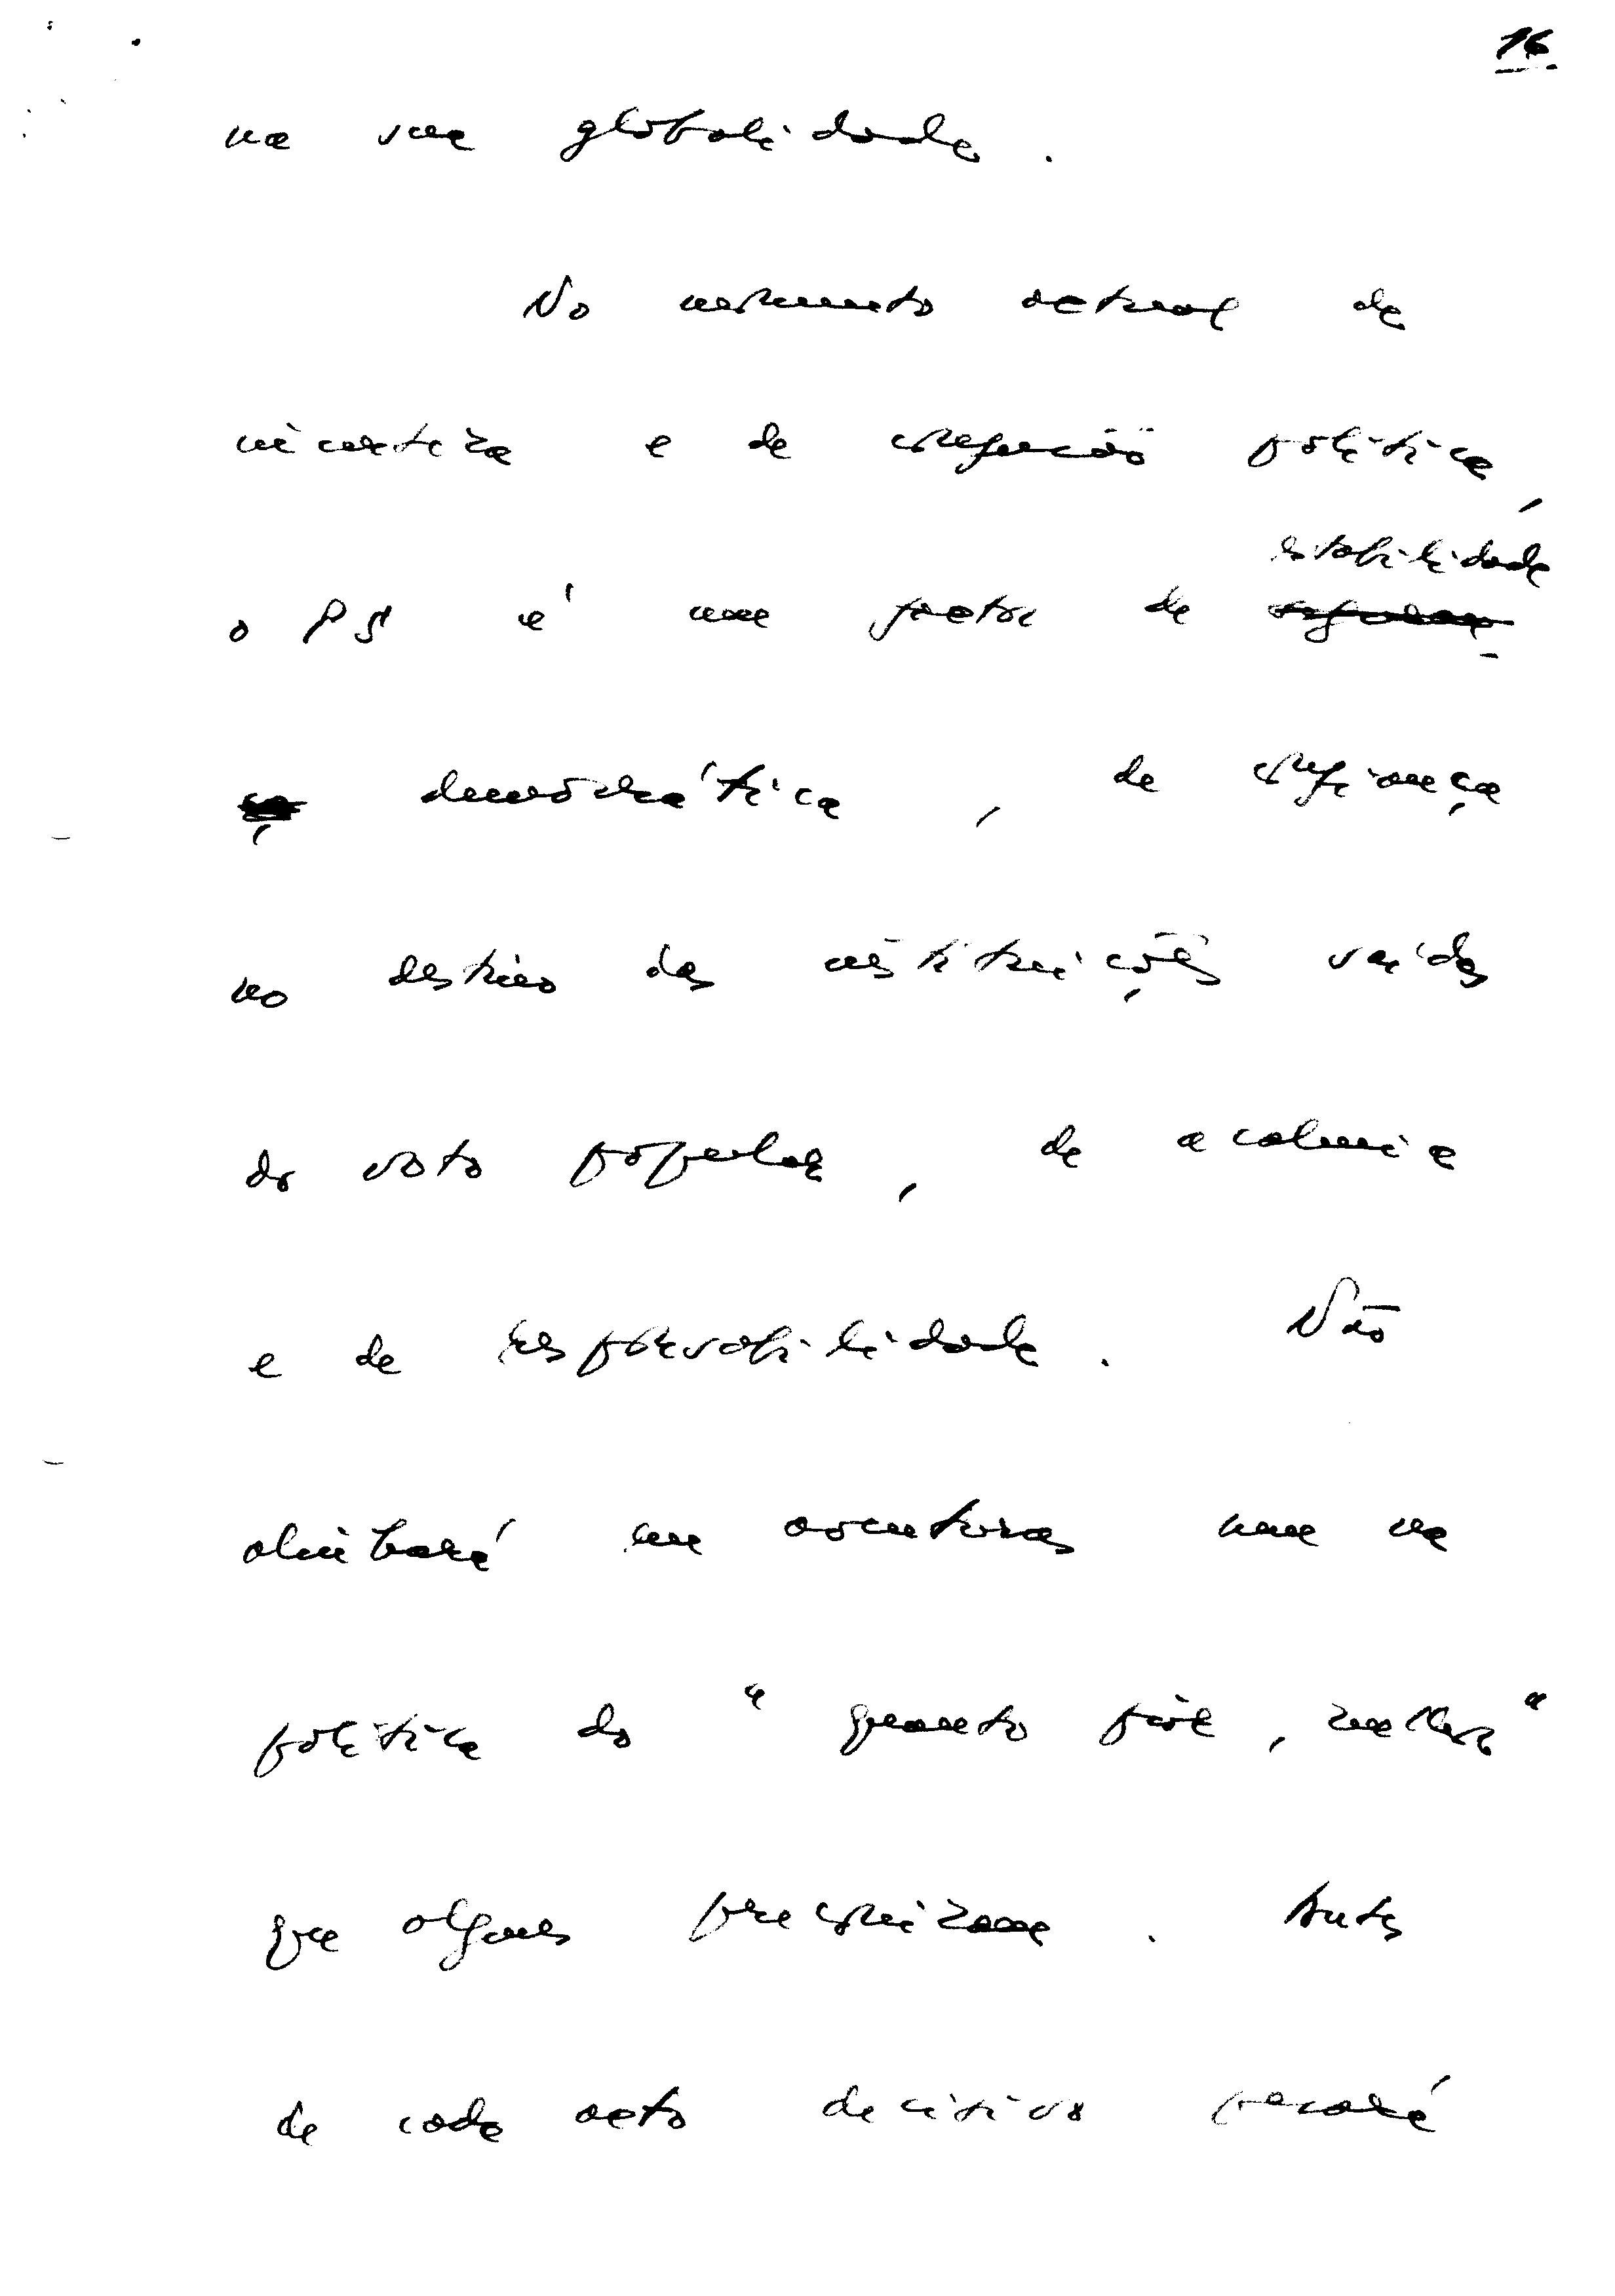 16
na sua globalidade.
No momento actual de
incerteza e de confusão política,
estabilidade
o PS é um factor de
democrática, de confiança
no destino das instituições saídas
do voto popular, de acalmia
e de responsabilidade. Não
alinhará em aventuras nem na
política do "quanto pior, melhor"
que alguns preconizam. Antes
de cada acto decisivo pesará